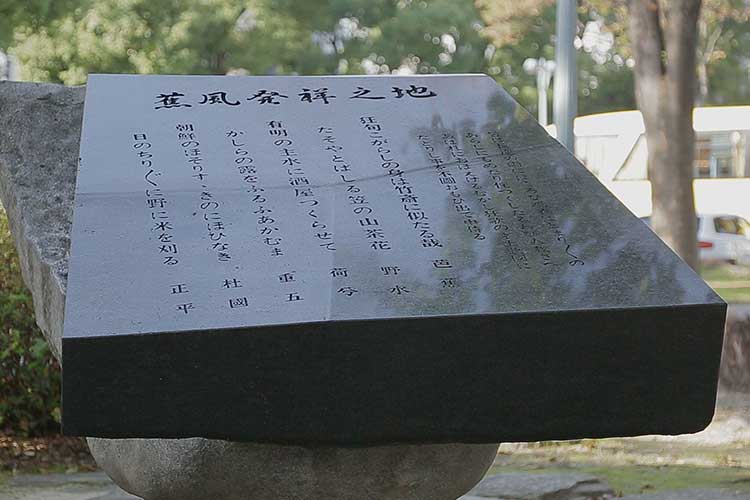 蕉風発祥之地
狂句こがらしの身は竹斎に似たる哉 芭蕉
たそやとばしる笠の山茶花 野水
有明の主水に酒屋つくらせて 荷兮
かしらの露をふるふあかむま 重五
朝鮮のほそりすゝきのにほひなき 杜國
日のちり／＼に野に米を刈る 正平